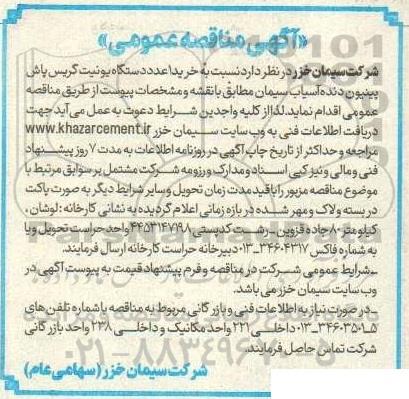 «آگهی مناقصه عمومی»
شرکت سیمان خزر در نظر دارد نسبت به خرید ۱ عدد دستگاه یونیت گریس پاش
پینیون دنده آسیاب سیمان مطابق با نقشه و مشخصات پیوست از طریق مناقصه
عمومی اقدام نماید. لذا از کلیه واجدین شرایط دعوت به عمل می آید جهت
دریافت اطلاعات فنی به وب سایت سیمان خزر www.khazarcement.ir
مراجعه و حداکثر از تاریخ چاپ آگهی در روزنامه اطلاعات به مدت ۷ روز پیشنهاد
فنی و مالی و نیز کپی اسناد و مدارک و رزومه شرکت مشتمل بر سوابق مرتبط با
موضوع مناقصه مزبور را با قید مدت زمان تحویل و سایر شرایط دیگر به صورت پاکت
در بسته و لاک و مهر شده در بازه زمانی اعلام گردیده به نشانی کارخانه: لوشان،
کیلومتر ۸۰ جاده قزوین - رشت کدپستی ۴۴۵۳۱۴۷۷۹۸ واحد حراست تحویل و یا
به شماره فاکس ۳۴۶۰۴۳۱۷-۰۱۳ دبیرخانه حراست کارخانه ارسال فرمایند.
- شرایط عمومی شرکت در مناقصه و فرم پیشنهاد قیمت به پیوست آگهی در
وب سایت سیمان خزر می باشد.
- در صورت نیاز به اطلاعات فنی و بازرگانی مربوط به مناقصه با شماره تلفن های
۵-۳۴۶۰۳۵۰۱-۰۱۳ داخلی ۲۲۱ واحد مکانیک و داخلی ۲۳۸ واحد بازرگانی
شرکت تماس حاصل فرمایند.
۰۲۱-۸۸۳۴۹۶۷۰-۵
شرکت سیمان خزر (سهامی عام)